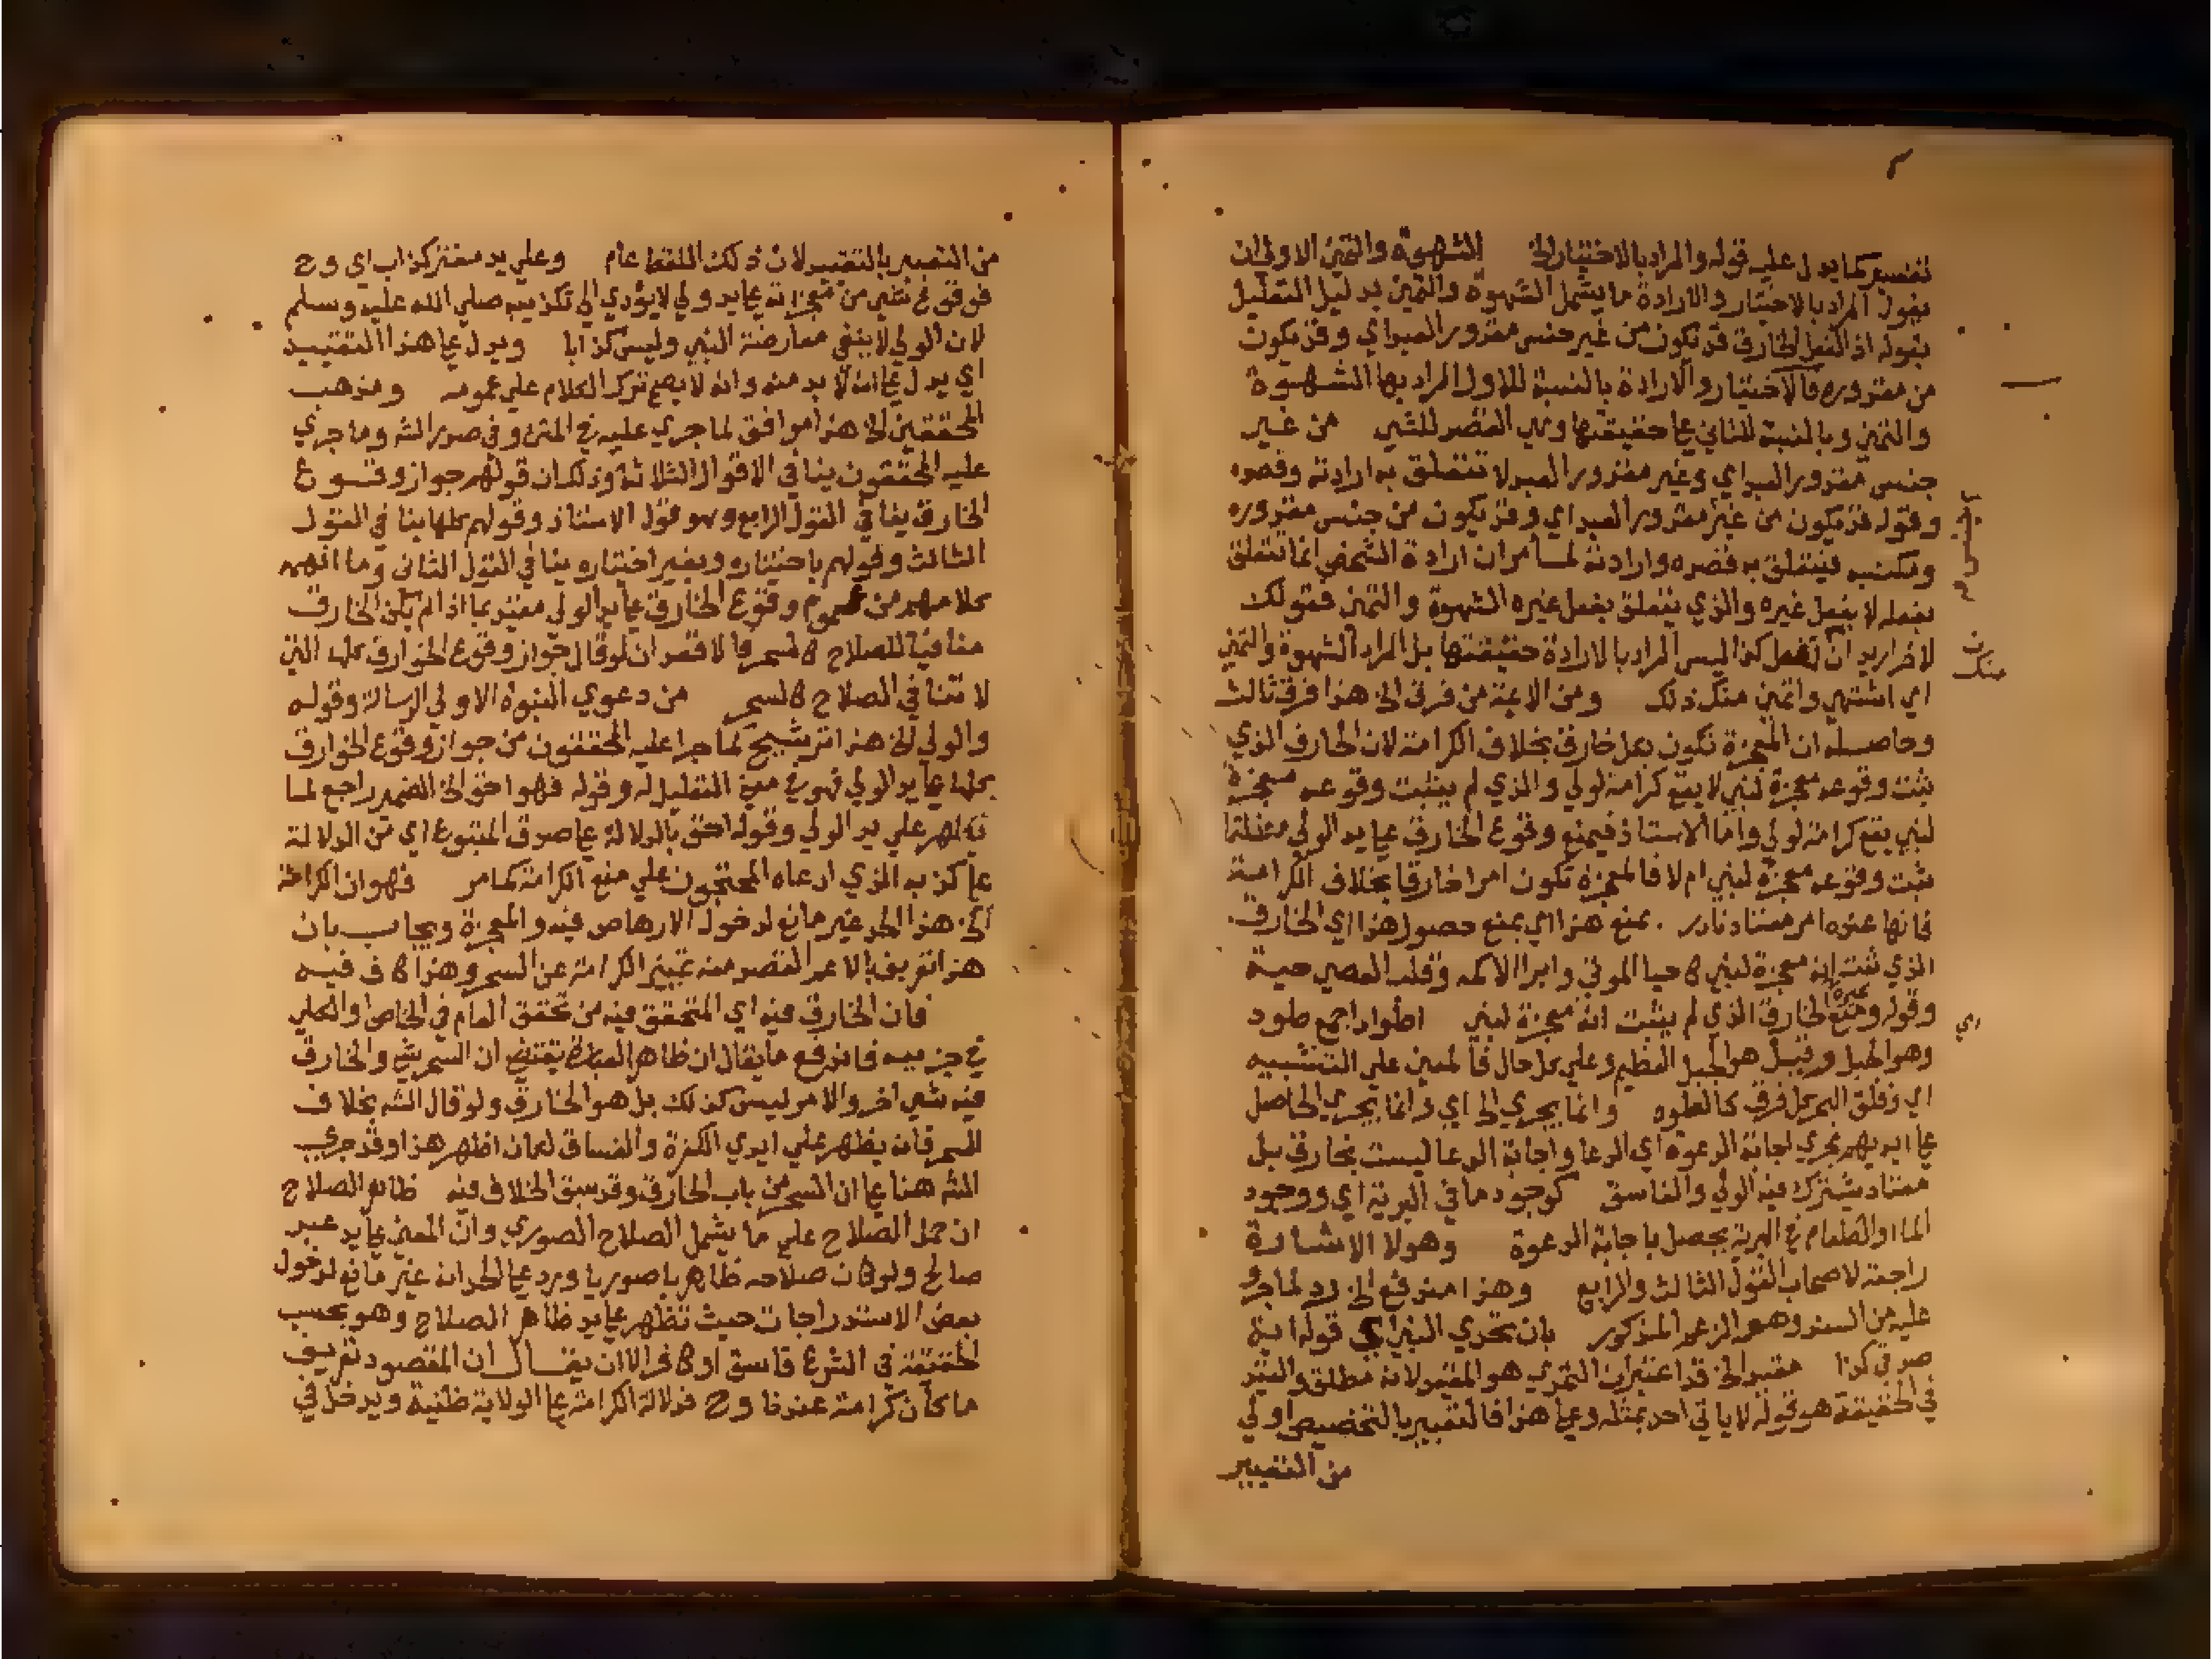 تفسير كما يدل عليه قوله والمراد بالاختيار الخ الشهوة والتمني الاولى ان
يقول المراد بالاختيار والارادة ما يشمل الشهوة والتمني بدليل التعليل
بقوله اذ الفعل الخارق قد يكون من غير جنس مقدور العبد اي وقد يكون
من مقدوره فالاختيار والارادة بالنسبة للاول المراد بها الشهوة
والتمني وبالنسبة للثاني على حقيقتها وهي القصر للشي من غير
جنس مقدور العبد اي وغير مقدور العبد لا تتعلق به ارادته وقصده
وقوله قد يكون من غير مقدور العبد اي وقد يكون من جنس مقدوره
ومكتسبه فيتعلق به قصده وارادته لما مر ان ارادة الشخص انما تتعلق
بفعله لا بفعل غيره والذي يتعلق بفعل غيره الشهوة والتمني فقولك
لاخر اريد ان تفعل كذا ليس المراد بالارادة حقيقتها بل المراد الشهوة والتمني
اي اشتهي واتمني منك ذلك ومن الايمة من فرق الخ هذا فرق ثالث
وحاصله ان المعجزة تكون بكل خارق بخلاف الكرامة لان الخارق الذي
ثبت وقوعه معجزة لنبي لا يقع كرامة لولي والذي لم يثبت وقوعه معجزة
لنبي يقع كرامة لولي واما الاستاذ فيمنع وقوع الخارق على يد الولي مطلقا
ثبت وقوعه معجزة لنبي ام لا فالمعجزة تكون امرا خارقا بخلاف الكرامة
فانها عنده امر معتاد نادر . بمنع هذا اي بمنع حصول هذا اي الخارق
الذي ثبت انه معجزة لنبي كاحيا الموتي وابرا الاكمه وقلب العصي حية
وقوله ومنع غيره الخارق الذي لم يثبت انه معجزة لنبي اطواد جمع طود
وهو الجبل وقيل هو الجبل العظيم وعلي كل حال فالمعني علي التشبيه
اي فلق البحر كل فرق كالطود وانما يجري الخ اي وانما يجري الحاصل
على ايديهم مجري اجابة الدعوة اي الدعا واجابة الدعا ليست بخارق بل
معتاد يشترك فيه الولي والفاسق كوجود ما في البرية اي ووجود
الما والطعام في البرية يحصل باجابة الدعوة وهولا الاشارة
راجعة لاصحاب القول الثالث والرابع وهذا مندفع الخ رد لما جروا
عليه من السند وهو الزعم المذكور بان تحدي النبي اي قوله اية
صدقي كذا مقيد الخ قد اعتبران التحدي هو المقيد لانه مطلق والقيد
في الحقيقة هو قوله لا ياتي احد بمثله وعلى هذا فالتعبير بالتخصيص اولي
من التعبير
من التعبير بالتقييد لان ذلك اللفظ عام وعلي يد مفتر كذاب اي وح
فوقوع شي من معجزاته على يد ولي لا يؤدي الي تكذيبه صلي الله عليه وسلم
لان الولي لا يبتغي معارضة النبي وليس كذابا ويدل على هذا التقييد
اي يدل على انه لا بد منه وانه لا يصح ترك الكلام علي عمومه ومذهب
المحققين الخ هذا موافق لما جري عليه في المتن وفي صدر الشه وما جري
عليه المحققون ينافي الاقوال الثلاثة وذلك ان قولهم جواز وقوع
الخارق ينافي القول الرابع وهو قول الاستاذ وقولهم كلها ينافي القول
الثالث وقولهم باختياره وبغير اختياره ينافي القول الثاني وما افهمه
كلامهم من عموم وقوع الخارق على يد الولي مقيد بما اذا لم يكن الخارق
منافيا للصلاح كالسحر فالاقعد ان لو قال جواز وقوع الخوارق كلها التي
لا تنافي الصلاح كالسحر من دعوي النبوة الاولي الرسالة وقوله
والولي الخ هذا ترشيح لما جرا عليه المحققون من جواز وقوع الخوارق
كلها على يد الولي فهو في معني التعليل له وقوله فهو احق الخ الضمير راجع لما
يظهر علي يد الولي وقوله احق بالدلالة على صدق المتبوع اي من الدلالة
على كذبه الذي ادعاه المحتجون علي منع الكرامة كما مر فهو ان الكرامة
الخ هذا الحد غير مانع لدخول الارهاص فيه والمعجزة ويجاب بان
هذا تعريف بالاعم القصد منه تمييز الكرامة عن السحر وهذا كاف فيه
فان الخارق فيه اي المتحقق فيه من تحقق العام في الخاص والكلي
في جزييه فاندفع ما يقال ان ظاهر العبارة يقتضي ان السحر شي والخارق
فيه شي اخر والامر ليس كذلك بل هو الخارق ولو قال الشه بخلاف
السحر فانه يظهر علي ايدي الكفرة والفساق لكان اظهر هذا وقد جري
الشه هنا على ان السحر من باب الخارق وقد سبق الخلاف فيه ظاهر الصلاح
ان حمل الصلاح علي ما يشمل الصلاح الصوري وان المعني على يد عبد
صالح ولو كان صلاحه ظاهريا صوريا ورد على الحد انه غير مانع لدخول
بعض الاستدراجات حيث تظهر على يد ظاهر الصلاح وهو بحسب
الحقيقة في الشرع فاسق او كافر الا ان يقال ان المقصود تعريف
ما كان كرامة عندنا وح فدلالة الكرامة على الولاية ظنية ويدخل في